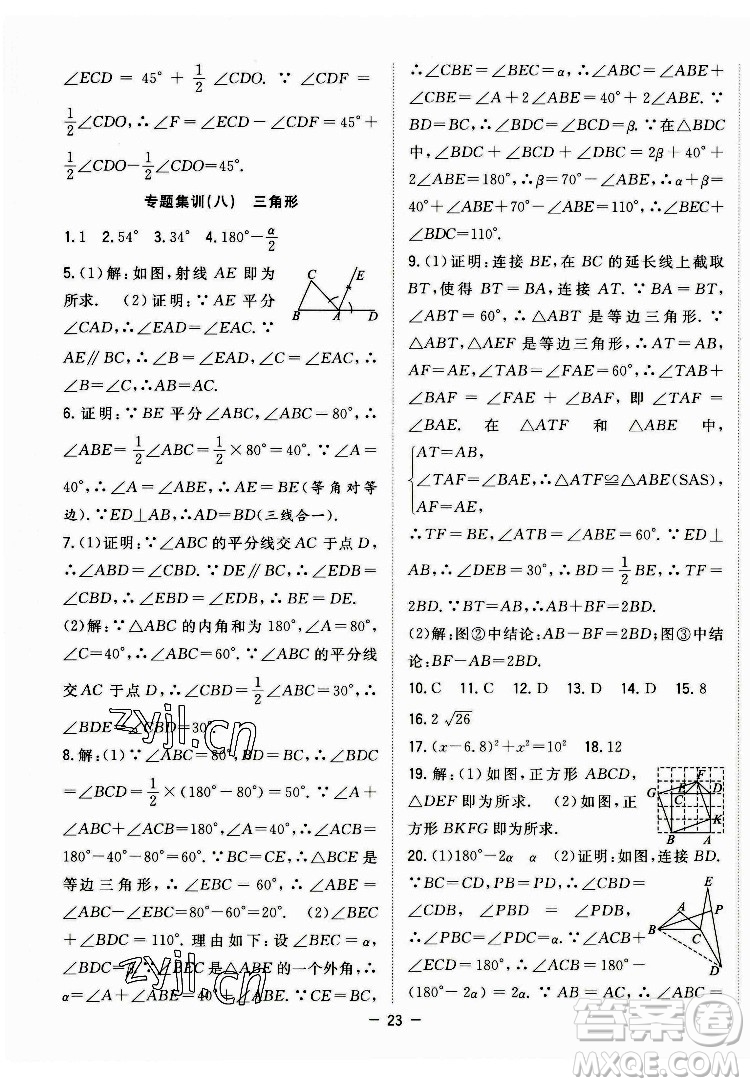 ∠ECD = 45° + 1/2∠CDO. ∵ ∠CDF =
1/2∠CDO, ∴∠F = ∠ECD − ∠CDF = 45° +
1/2∠CDO − 1/2∠CDO = 45°.
专题集训(八) 三角形
1. 1 2. 54° 3. 34° 4. 180° − α/2
5. (1)解:如图,射线 AE 即为
所求. (2)证明:∵AE 平分
∠CAD,∴∠EAD=∠EAC. ∵
AE∥BC,∴∠B=∠EAD,∠C=∠EAC. ∴
∠B=∠C. ∴AB=AC.
C E
B A D
6. 证明:∵BE 平分∠ABC,∠ABC=80°,∴
∠ABE=1/2∠ABC=1/2×80°=40°. ∵∠A=
40°,∴∠A=∠ABE. ∴AE=BE(等角对等
边). ∵ED⊥AB,∴AD=BD(三线合一).
7. (1)证明:∵∠ABC 的平分线交 AC 于点 D,
∴∠ABD=∠CBD. ∵DE∥BC,∴∠BDE=
∠CBD. ∴∠EBD=∠BDE. ∴BE=DE.
(2)解:∵△ABC 的内角和为 180°,∠A=
80°,∠C=40°,∴∠ABC=60°. ∵∠ABC 的平分线
交 AC 于点 D,∴∠CBD=1/2∠ABC=30°. ∴
∠BDE=∠CBD=30°.
8. 解:(1)∵∠ABC=80°,BD=BC,∴∠BDC
=∠BCD=1/2×(180°−80°)=50°. ∵∠A+
∠ABC+∠ACB=180°,∴∠ACB=180°−
40°−80°=60°. ∵CE=BC,∴△BCE 是
等边三角形. ∴∠EBC=60°. ∴∠ABE=
∠ABC−∠EBC=20°. (2)∠BEC
+∠BDC=110°. 理由如下:设∠BEC=α,
∠BDC=β. ∵∠BEC 是△ABE 的一个外角,∴
α=∠A+∠ABE=40°+∠ABE. ∵CE=BC,
∴∠CBE=∠BEC=α. ∴∠ABC=∠ABE+
∠CBE=∠A+2∠ABE=40°+2∠ABE. ∵
BD=BC,∴∠BDC=∠BCD=β. ∵在△BDC
中,∠BDC+∠BCD+∠DBC=2β+40°+
2∠ABE=180°,∴β=70°−∠ABE. ∴α+β=
40°+∠ABE+70°−∠ABE=110°. ∴∠BEC+
∠BDC=110°.
9. (1)证明:连接 BE,在 BC 的延长线上截取
BT,使得 BT=BA,连接 AT. ∵BT=BA,
∠ABT=60°,∴△ABT 是等边三角形. ∵
△ABT,△AEF 是等边三角形,∴AT=AB,
AF=AE,∠TAB=∠FAE=60°. ∴∠TAB−
∠FAB = ∠FAE − ∠FAB, 即 ∠TAF =
∠BAE. 在 △ATF 和 △ABE 中,
AT=AB,
∠TAF=∠BAE, ∴△ATF≌△ABE(SAS).
AF=AE,
∴TF=BE,∠ATB=∠ABE=60°. ∵ED⊥
AB,∴∠DEB=30°. ∴BD=1/2BE. ∴TF=
2BD. ∵BT=AB,∴AB+BF=2BD.
(2)解:图②中结论:AB−BF=2BD. 图③中结
论:BF−AB=2BD.
10. C 11. C 12. D 13. C 14. D 15. 8
16. 2 √26
17. (x−6.8)²+x²=10² 18. 12
19. 解:(1)如图,正方形 ABCD,
△DEF 即为所求. (2)如图,正
方形 BKFG 即为所求.
F
G C E D
K
B A
20. (1)180°−2α α (2)证明:如图,连接 BD.
∵BC=CD,PB=PD,∴∠CBD
=∠CDB,∠PBD=∠PDB. ∴
∠PBC = ∠PDC = α. ∵∠BCD
+∠ECD=180°,∴∠ECD=180°−
(180° − 2α) = 2α. ∵ ∠ABC =
E
A P
B C
D
— 23 —
zyjl.cn
zyjl.cn
答案圈
MXQE.COM